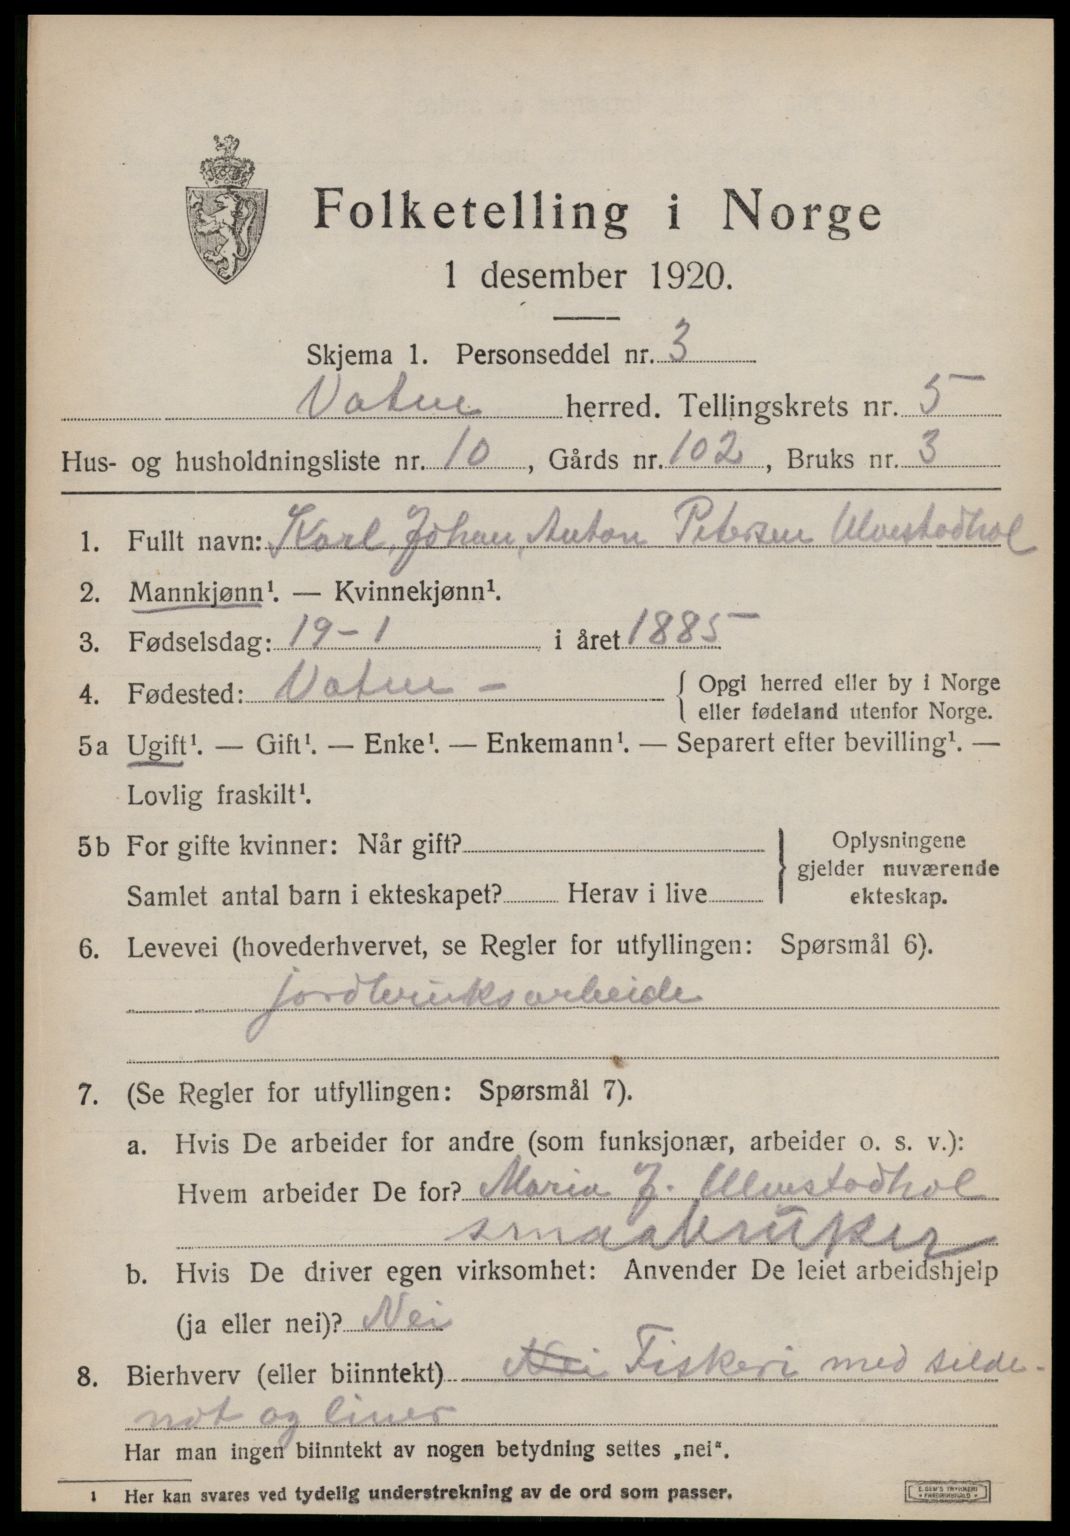 Folketelling i Norge
1 desember 1920.
Skjema 1. Personseddel nr. 3
Vatne herred. Tellingskrets nr. 5
Hus- og husholdningsliste nr. 10, Gårds nr. 102, Bruks nr. 3
1. Fullt navn: Karl, Johan, Anton Petersen Ulvestadhol
2. Mannkjønn¹. — Kvinnekjønn¹.
3. Fødselsdag: 19-1 i året 1885
4. Fødested: Vatne - { Opgi herred eller by i Norge
eller fødeland utenfor Norge.
5a Ugift¹. — Gift¹. — Enke¹. — Enkemann¹. — Separert efter bevilling¹. —
Lovlig fraskilt¹.
5b For gifte kvinner: Når gift?
Samlet antal barn i ekteskapet? Herav i live
} Oplysningene
gjelder nuværende
ekteskap.
6. Levevei (hovederhvervet, se Regler for utfyllingen: Spørsmål 6).
jordbruksarbeide
7. (Se Regler for utfyllingen: Spørsmål 7).
a. Hvis De arbeider for andre (som funksjonær, arbeider o. s. v.):
Hvem arbeider De for? Maria J. Ulvestadhol
smaabruker
b. Hvis De driver egen virksomhet: Anvender De leiet arbeidshjelp
(ja eller nei)? Nei
8. Bierhverv (eller biinntekt) Nei Fiskeri med silde-
not og liner
Har man ingen biinntekt av nogen betydning settes „nei".
¹ Her kan svares ved tydelig understrekning av de ord som passer.